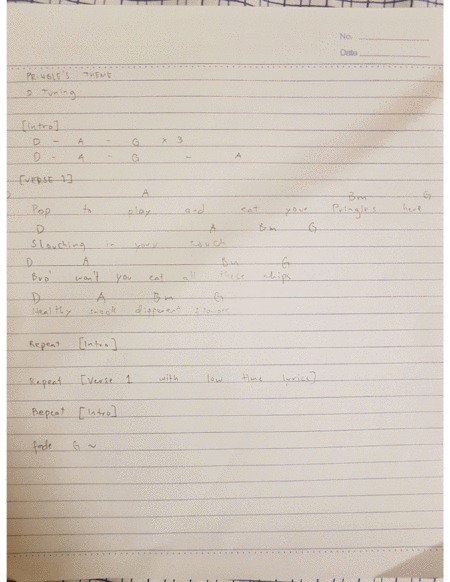 No.
Date
PRINGLE'S THEME
D Tuning
[Intro]
D - A - G x 3
D - A - G - A
[VERSE 1]
D A Bm G
Pop to play and eat your Pringles here
D A Bm G
Slouching in your couch
D A Bm G
Bro' won't you eat all these chips
D A Bm G
Healthy snack different flavors
Repeat [Intro]
Repeat [Verse 1 with low time lyrics]
Repeat [Intro]
fade G ~